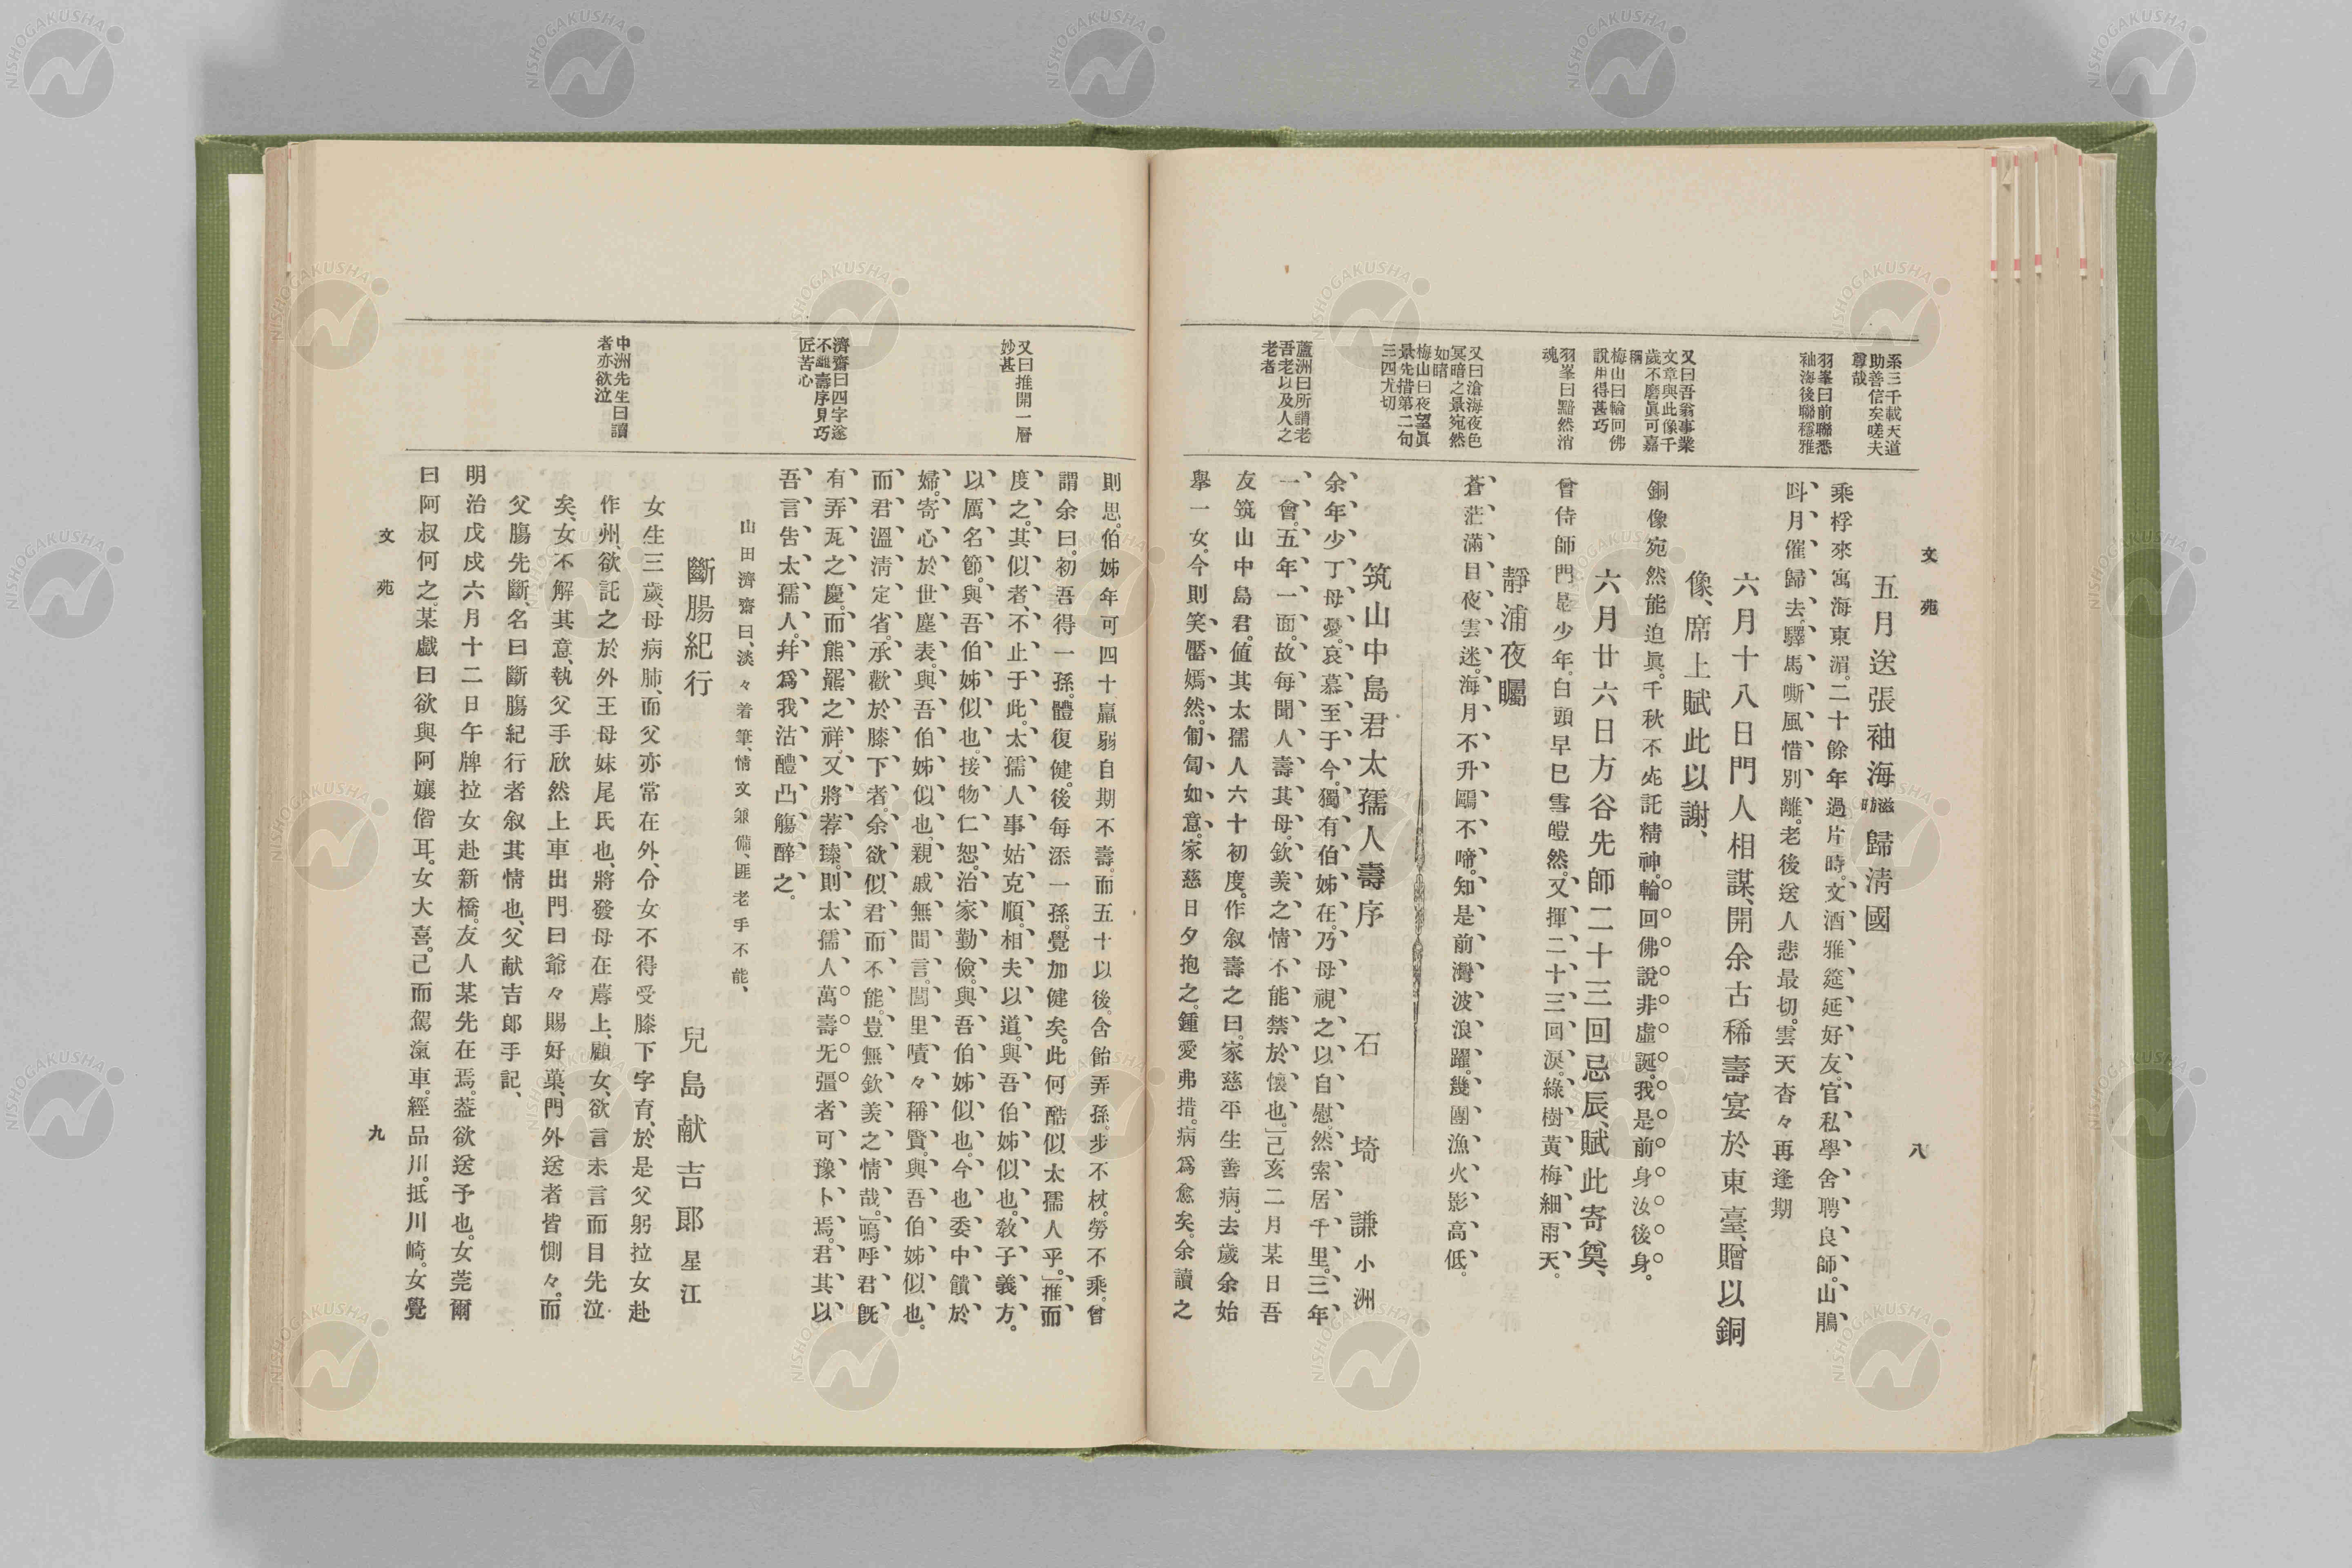 文苑
八
系三千載天道
助善信矣嗟夫
尊哉
羽峯曰前聯悉
袖海後聯穩雅
又曰吾翁事業
文章與此像千
歲不磨眞可嘉
稱
梅山曰輪回佛
說用得甚巧
羽峯曰黯然消
魂
又曰滄海夜色
冥暗之景宛然
如睹
梅山曰夜望眞
景先措第二句
三四尤切
蘆洲曰所謂老
吾老以及人之
老者
五月送張袖海滋昉歸淸國
乘桴來寓海東湄。二十餘年過片時。文酒雅筵延好友。官私學舍聘良師。山鵑
叫月催歸去。驛馬嘶風惜別離。老後送人悲最切。雲天杳々再逢期
六月十八日門人相謀、開余古稀壽宴於東臺、贈以銅
像、席上賦此以謝、
銅像宛然能迫眞。千秋不死託精神。輪回佛說非虛誕。我是前身汝後身。
六月廿六日方谷先師二十三回忌辰、賦此寄奠、
曾侍師門是少年。白頭早已雪皚然。又揮二十三回淚。綠樹黃梅細雨天。
靜浦夜矚
蒼茫滿目夜雲迷。海月不升鷗不啼。知是前灣波浪躍。幾團漁火影高低。
筑山中島君太孺人壽序 石埼謙小洲
余年少丁母憂。哀慕至于今。獨有伯姊在。乃母視之以自慰。然索居千里。三年
一會。五年一面。故每聞人壽其母。欽羨之情不能禁於懷也。」己亥二月某日吾
友筑山中島君。値其太孺人六十初度。作叙壽之曰。家慈平生善病。去歲余始
擧一女。今則笑靨嫣然。匍匐如意。家慈日夕抱之。鍾愛弗措。病爲愈矣。余讀之
又曰推開一層
妙甚
濟齋曰四字遂
不離壽序見巧
匠苦心
中洲先生曰讀
者亦欲泣
則思。伯姊年可四十。羸弱自期不壽。而五十以後。含飴弄孫。步不杖。勞不乘。曾
謂余曰。初吾得一孫。體復健。後每添一孫。覺加健矣。此何酷似太孺人乎。」推而
度之。其似者。不止于此。太孺人事姑克順。相夫以道。與吾伯姊似也。敎子義方。
以厲名節。與吾伯姊似也。接物仁恕。治家勤儉。與吾伯姊似也。今也委中饋於
婦。寄心於世塵表。與吾伯姊似也。親戚無間言。閭里嘖々稱賢。與吾伯姊似也。
而君溫凊定省。承歡於膝下者。余欲似君而不能。豈無欽羨之情哉。」嗚呼君旣
有弄瓦之慶。而熊羆之祥。又將荐臻。則太孺人萬壽无彊者可豫卜焉。君其以
吾言告太孺人。幷爲我沽醴凸觴醉之。
山田濟齋曰、淡々着筆、情文兼備、匪老手不能、
斷腸紀行 兒島献吉郞星江
女生三歲、母病肺、而父亦常在外、令女不得受膝下字育、於是父躬拉女赴
作州、欲託之於外王母妹尾氏也、將發母在蓐上、顧女、欲言未言而目先泣
矣、女不解其意、執父手欣然上車出門曰爺々賜好菓、門外送者皆惻々。而
父膓先斷、名曰斷膓紀行者叙其情也、父献吉郎手記、
明治戊戌六月十二日午牌拉女赴新橋。友人某先在焉。葢欲送予也。女莞爾
曰阿叔何之。某戲曰欲與阿孃偕耳。女大喜。已而駕滊車。經品川。抵川崎。女覺
文苑
九